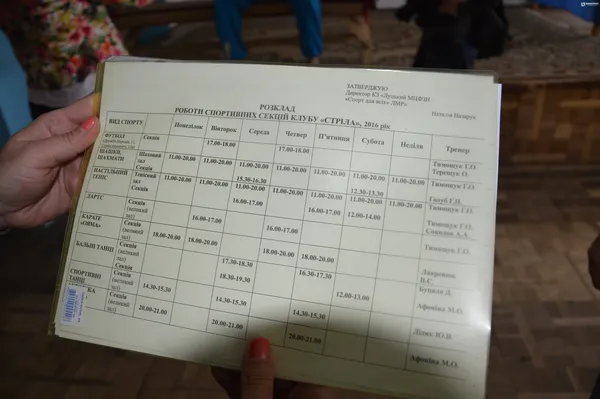 ЗАТВЕРДЖУЮ
Директор КЗ «Луцький МЦФЗН
«Спорт для всіх» ЛМР»
РОЗКЛАД
РОБОТИ СПОРТИВНИХ СЕКЦІЙ КЛУБУ «СТРІЛА», 2016 рік
ВИД СПОРТУ Понеділок Вівторок Середа Четвер П'ятниця Субота Неділя Тренер
ФУТБОЛ Секція 17.00-18.00 17.00-18.00 Тимощук Г.О.
ШАШКИ, ШАХМАТИ Шаховий зал 11.00-20.00 11.00-20.00 11.00-20.00 11.00-20.00 11.00-20.00 11.00-20.00 11.00-20.00
Секція 15.30-16.30 12.30-13.30
НАСТІЛЬНИЙ ТЕНІС Тенісний зал 11.00-20.00 11.00-20.00 11.00-20.00 11.00-20.00 11.00-20.00 11.00-20.00 11.00-20.00 Тимощук Г.О.
Секція 16.00-17.00 16.00-17.00 12.00-14.00
ДАРТС Секція (великий зал) 16.00-17.00 16.00-17.00 Тимощук Г.О.
КАРАТЕ Секція (великий зал) 18.00-20.00 18.00-20.00 18.00-20.00 18.00-20.00
БАЛЬНІ ТАНЦІ Секція (великий зал) 17.30-18.30 16.30-17.30
Секція 18.30-19.30 12.00-13.00 Афоніна М.О.
СПОРТИВНІ ТАНЦІ Секція (великий зал) 14.30-15.30 14.30-15.30 14.30-15.30
Секція (великий зал) 20.00-21.00 20.00-21.00 20.00-21.00 Афоніна М.О.